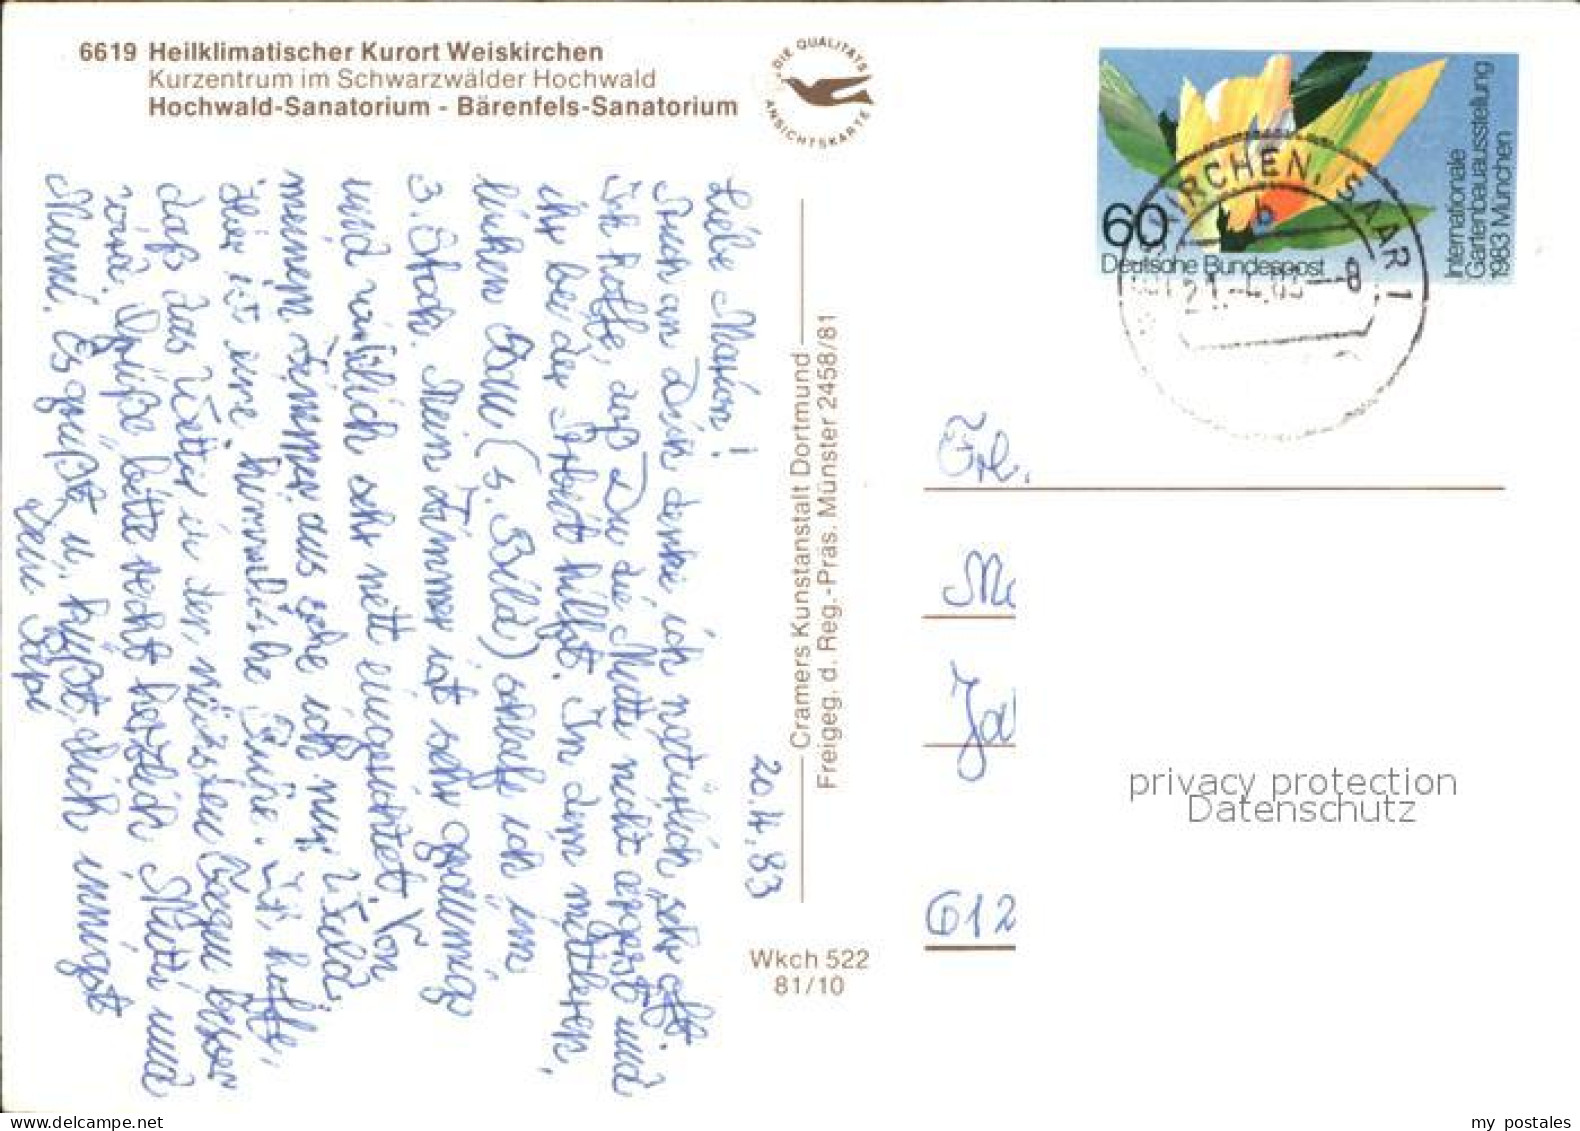 6619 Heilklimatischer Kurort Weiskirchen
Kurzentrum im Schwarzwälder Hochwald
Hochwald-Sanatorium - Bärenfels-Sanatorium
DIE QUALITÄTS
ANSICHTSKARTE
20.4.83
Liebe Marion!
Auch an Dich denke ich natürlich sehr oft.
Ich hoffe, daß Du die Mutti nicht ärgerst und
ihr bei der Arbeit hilfst. In dem mittleren,
linken Bau (s. Bild) schlafe ich im
3. Stock. Mein Zimmer ist sehr geräumig
und wirklich sehr nett eingerichtet. Von
meinem Zimmer aus sehe ich nur Wald.
Hier ist eine himmlische Ruhe. Ich hoffe,
daß das Wetter in den nächsten Tagen besser
wird. Grüße bitte recht herzlich Mutti und
Mami. Es grüßt u. küßt dich innigst
Dein Papi
Cramers Kunstanstalt Dortmund
Freigeg. d. Reg.-Präs. Münster 2458/81
Wkch 522
81/10
60
Deutsche Bundespost
Internationale
Gartenbauausstellung
1983 München
KIRCHEN, SAAR 1
b
21.-4.83-8
Frl.
Ma
612
privacy protection
Datenschutz
my postales